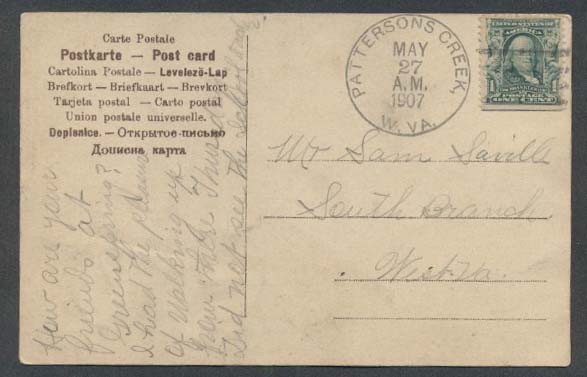 Carte Postale
Postkarte — Post card
Cartolina Postale — Levelezö-Lap
Brefkort — Briefkaart — Brevkort
Tarjeta postal — Carto postal
Union postale universelle.
Dopisnice. — Открытое письмо
Дописна карта
PATTERSONS CREEK,
MAY
27
A.M.
1907
W. VA.
UNITED STATES OF AMERICA
1 ONE CENT 1
Mr Sam Saville
South Branch
West Va.
How are your
friends at
Greenspring?
I had the pleasure
of walking up
from there Thursd
Did not see the